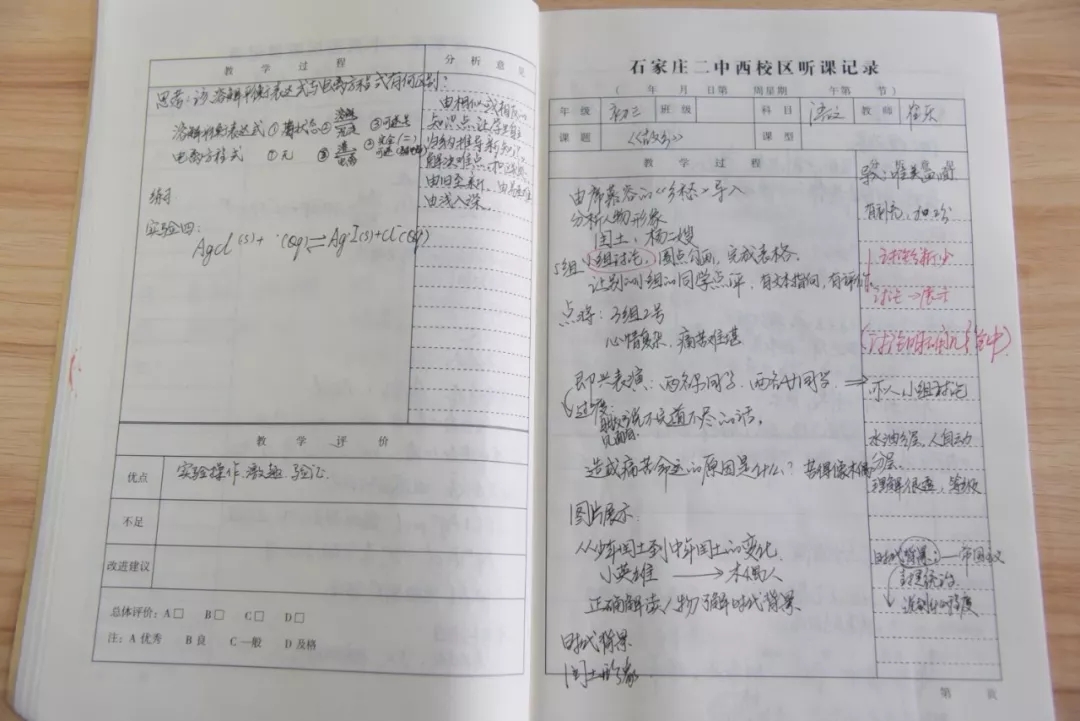 教 学 过 程
分 析 意 见
思考:沙溶解平衡表达式与电离方程式有何区别?
溶解平衡表达式 ①带状态 ② ③可逆号
电离方程式 ①无 ②
练习
实验四:
AgCl(s)+ (aq)⇌AgI(s)+Cl⁻(aq)
由相似或相反
知识点让学生
归纳推导新知识
解决难点
由旧至新
由浅入深。
教 学 评 价
优点
实验操作.激趣.验证.
不足
改进建议
总体评价:A□ B□ C□ D□
注:A 优秀 B 良 C 一般 D 及格
石家庄二中西校区听课记录
( 年 月 日第 周星期 午第 节)
年 级 初三 班 级 科 目 语文 教 师 崔乐
课 题 《故乡》 课 型
教 学 过 程
由席慕容的《乡愁》导入
分析人物形象
闰土、杨二嫂
5组 小组讨论,圈点勾画,完成表格。
让别的小组的同学点评,有文本指向,有评价。
点将:3组2号
心情复杂 痛苦难堪
即兴表演:两名男同学 两名女同学
过渡:
说不完道不尽的话,
造成痛苦命运的原因是什么?苦得像木偶
图片展示
从少年闰土到中年闰土的变化.
小英雄 → 木偶人
正确解读人物了解时代背景
时代背景
闰土形象
有补充,加2分
讨论分析少
讨论→展示
六人小组讨论
水油分层,人自动
分层。
理解很透,等级
时代背景:
封建统治
深刻的程度
第 页